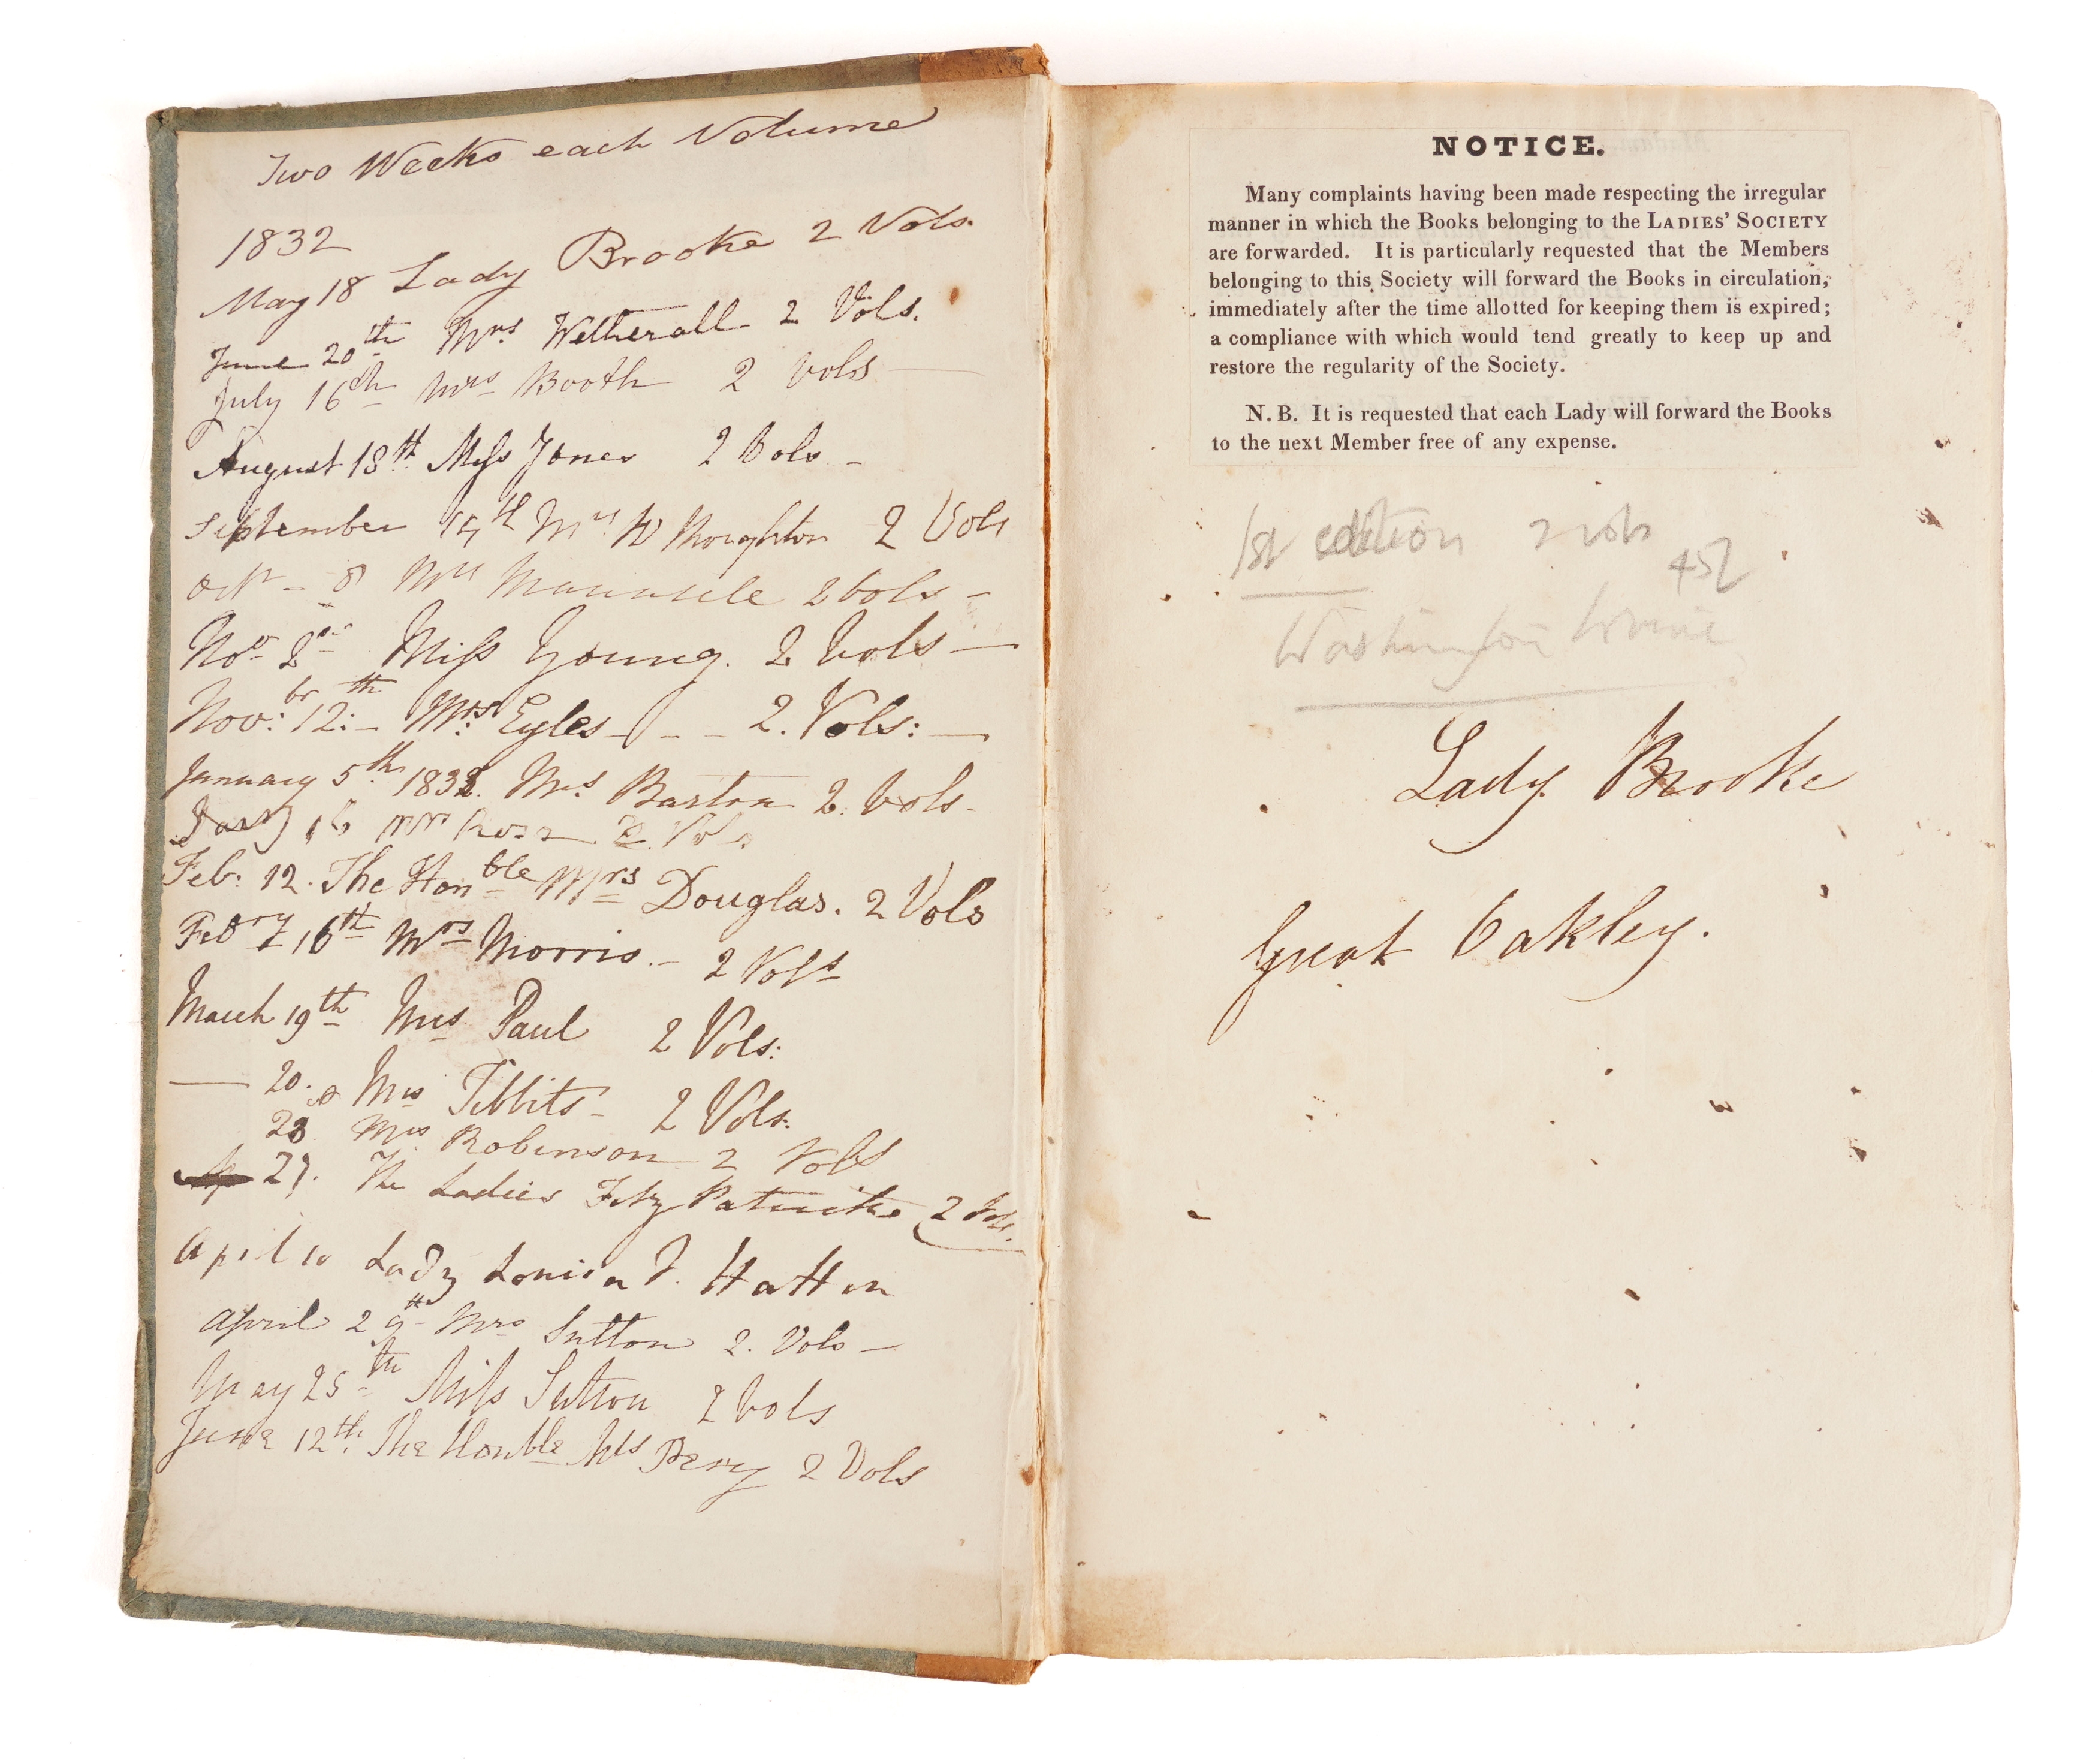 Two Weeks each Volume
1832
May 18 Lady Brooke 2 Vols.
June 20th Mrs Wetherall 2 Vols.
July 16th Mrs Booth 2 vols
August 18th Miss Jones 2 Vols
September 14th Mrs W 2 Vols
Octr 8 Mrs Maunsell 2 Vols
Nov 2nd Miss Young. 2 Vols
Novbr: 12th Mrs: Eyles 2. Vols:
January 5th 1832. Mrs Barton 2. Vols
Jany 15 Mrs Rose 2. Vols
Feb: 12. The Honble Mrs Douglas. 2 Vols
Febry 16th Mrs Morris. 2 Vols
March 19th Mrs Paul 2 Vols:
20. Mrs Tibbits 2 Vols.
23 Mrs Robinson 2 Vols
27. The Ladies Fitz Patrick 2 Vols.
April 10 Lady Louisa F. Hatton
April 29th Mrs Sutton 2. Vols
May 25th Miss Sutton 2 Vols
June 12th. The Honble Mrs 2 Vols
NOTICE.
Many complaints having been made respecting the irregular
manner in which the Books belonging to the LADIES' SOCIETY
are forwarded. It is particularly requested that the Members
belonging to this Society will forward the Books in circulation,
immediately after the time allotted for keeping them is expired;
a compliance with which would tend greatly to keep up and
restore the regularity of the Society.
N. B. It is requested that each Lady will forward the Books
to the next Member free of any expense.
1st edition 2 vols
Washington Irvine
Lady Brooke
Great Oakley.